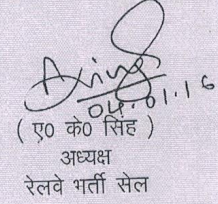 04.01.16
( ए० के० सिंह )
अध्यक्ष
रेलवे भर्ती सेल